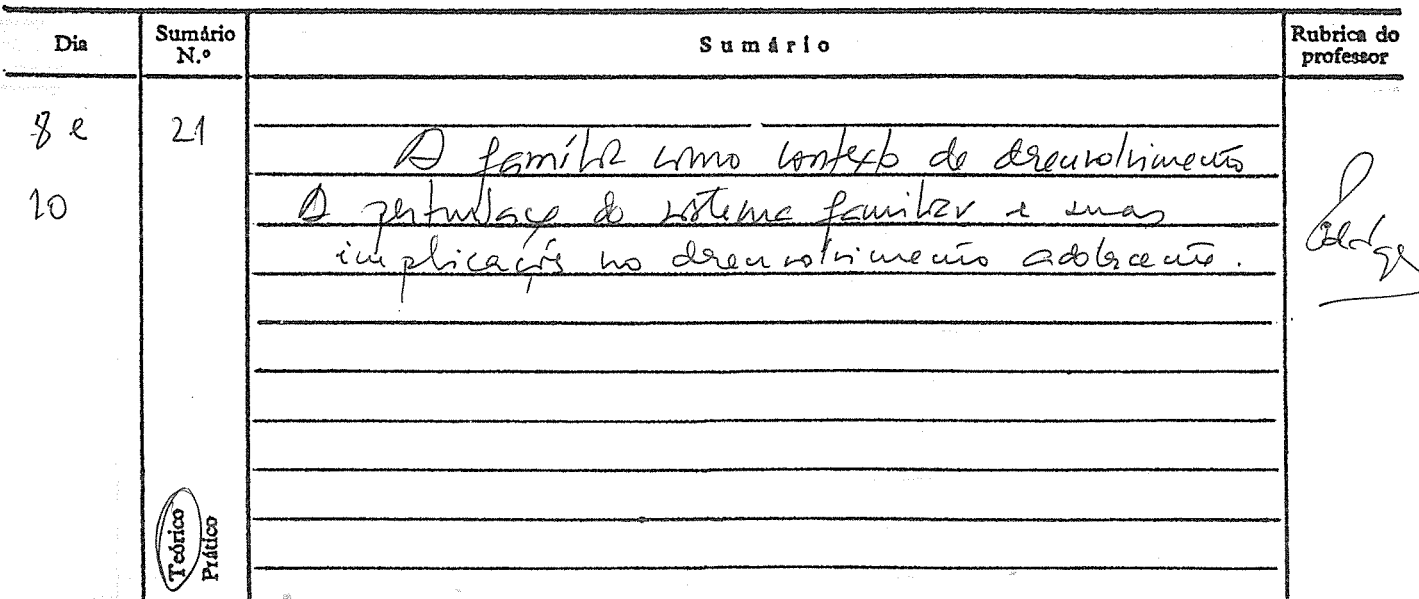 Dia
Sumário N.º
Sumário
Rubrica do professor
8 e 21
A família como contexto de desenvolvimento
10
A perturbação do sistema familiar e suas
implicações no desenvolvimento adolescente.
Teórico
Prático